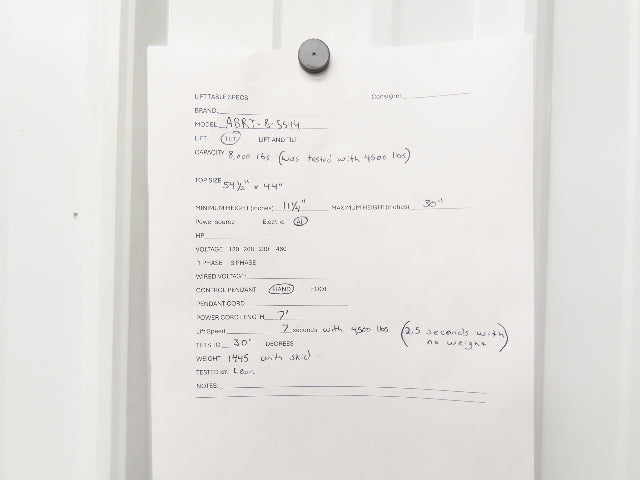 LIFT TABLE SPECS Consigner
BRAND:
MODEL ABRT-8-5514
LIFT TILT LIFT AND TILT
CAPACITY 8,000 lbs (was tested with 4500 lbs)
TOP SIZE 54½" x 44"
MINIMUM HEIGHT (inches) 11¼" MAXIMUM HEIGHT (inches) 30"
Power source Electric Air
HP
VOLTAGE 120 208 230 460
1 PHASE 3 PHASE
WIRED VOLTAGE:
CONTROL PENDANT HAND FOOT
PENDANT CORD
POWER CORD LENGTH 7'
Lift Speed 7 seconds with 4500 lbs (2.5 seconds with no weight)
TILTS TO 30° DEGREES
WEIGHT 1445 with skid
TESTED BY: Leon
NOTES: